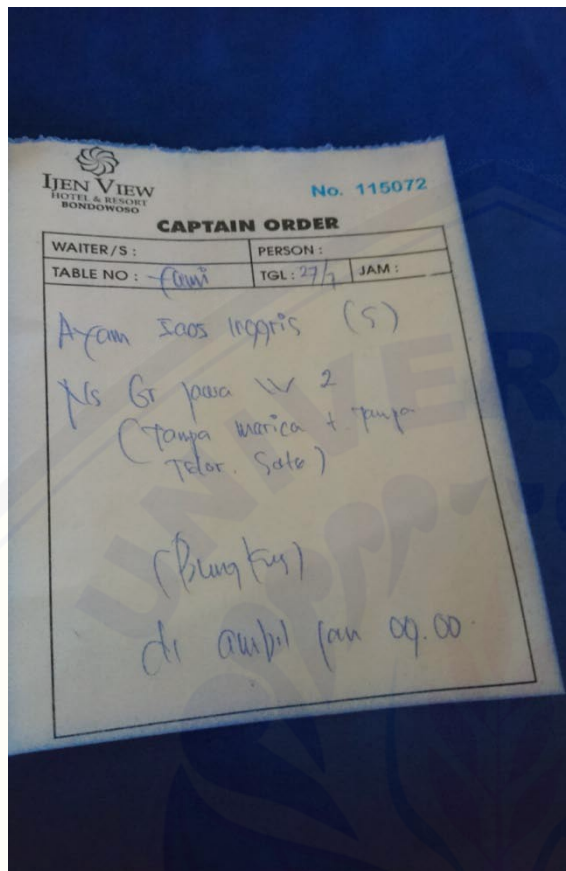 IJEN VIEW
HOTEL & RESORT
BONDOWOSO
No. 115072
CAPTAIN ORDER
WAITER/S :
PERSON :
TABLE NO :
TGL : 27/7
JAM :
Ayam Saos Inggris (S)
Ns Gr Jawa W 2
(Tanpa Marica + Tanpa
Telor. Sate)
(Bungkus)
di ambil Jam 09.00
UNIVER